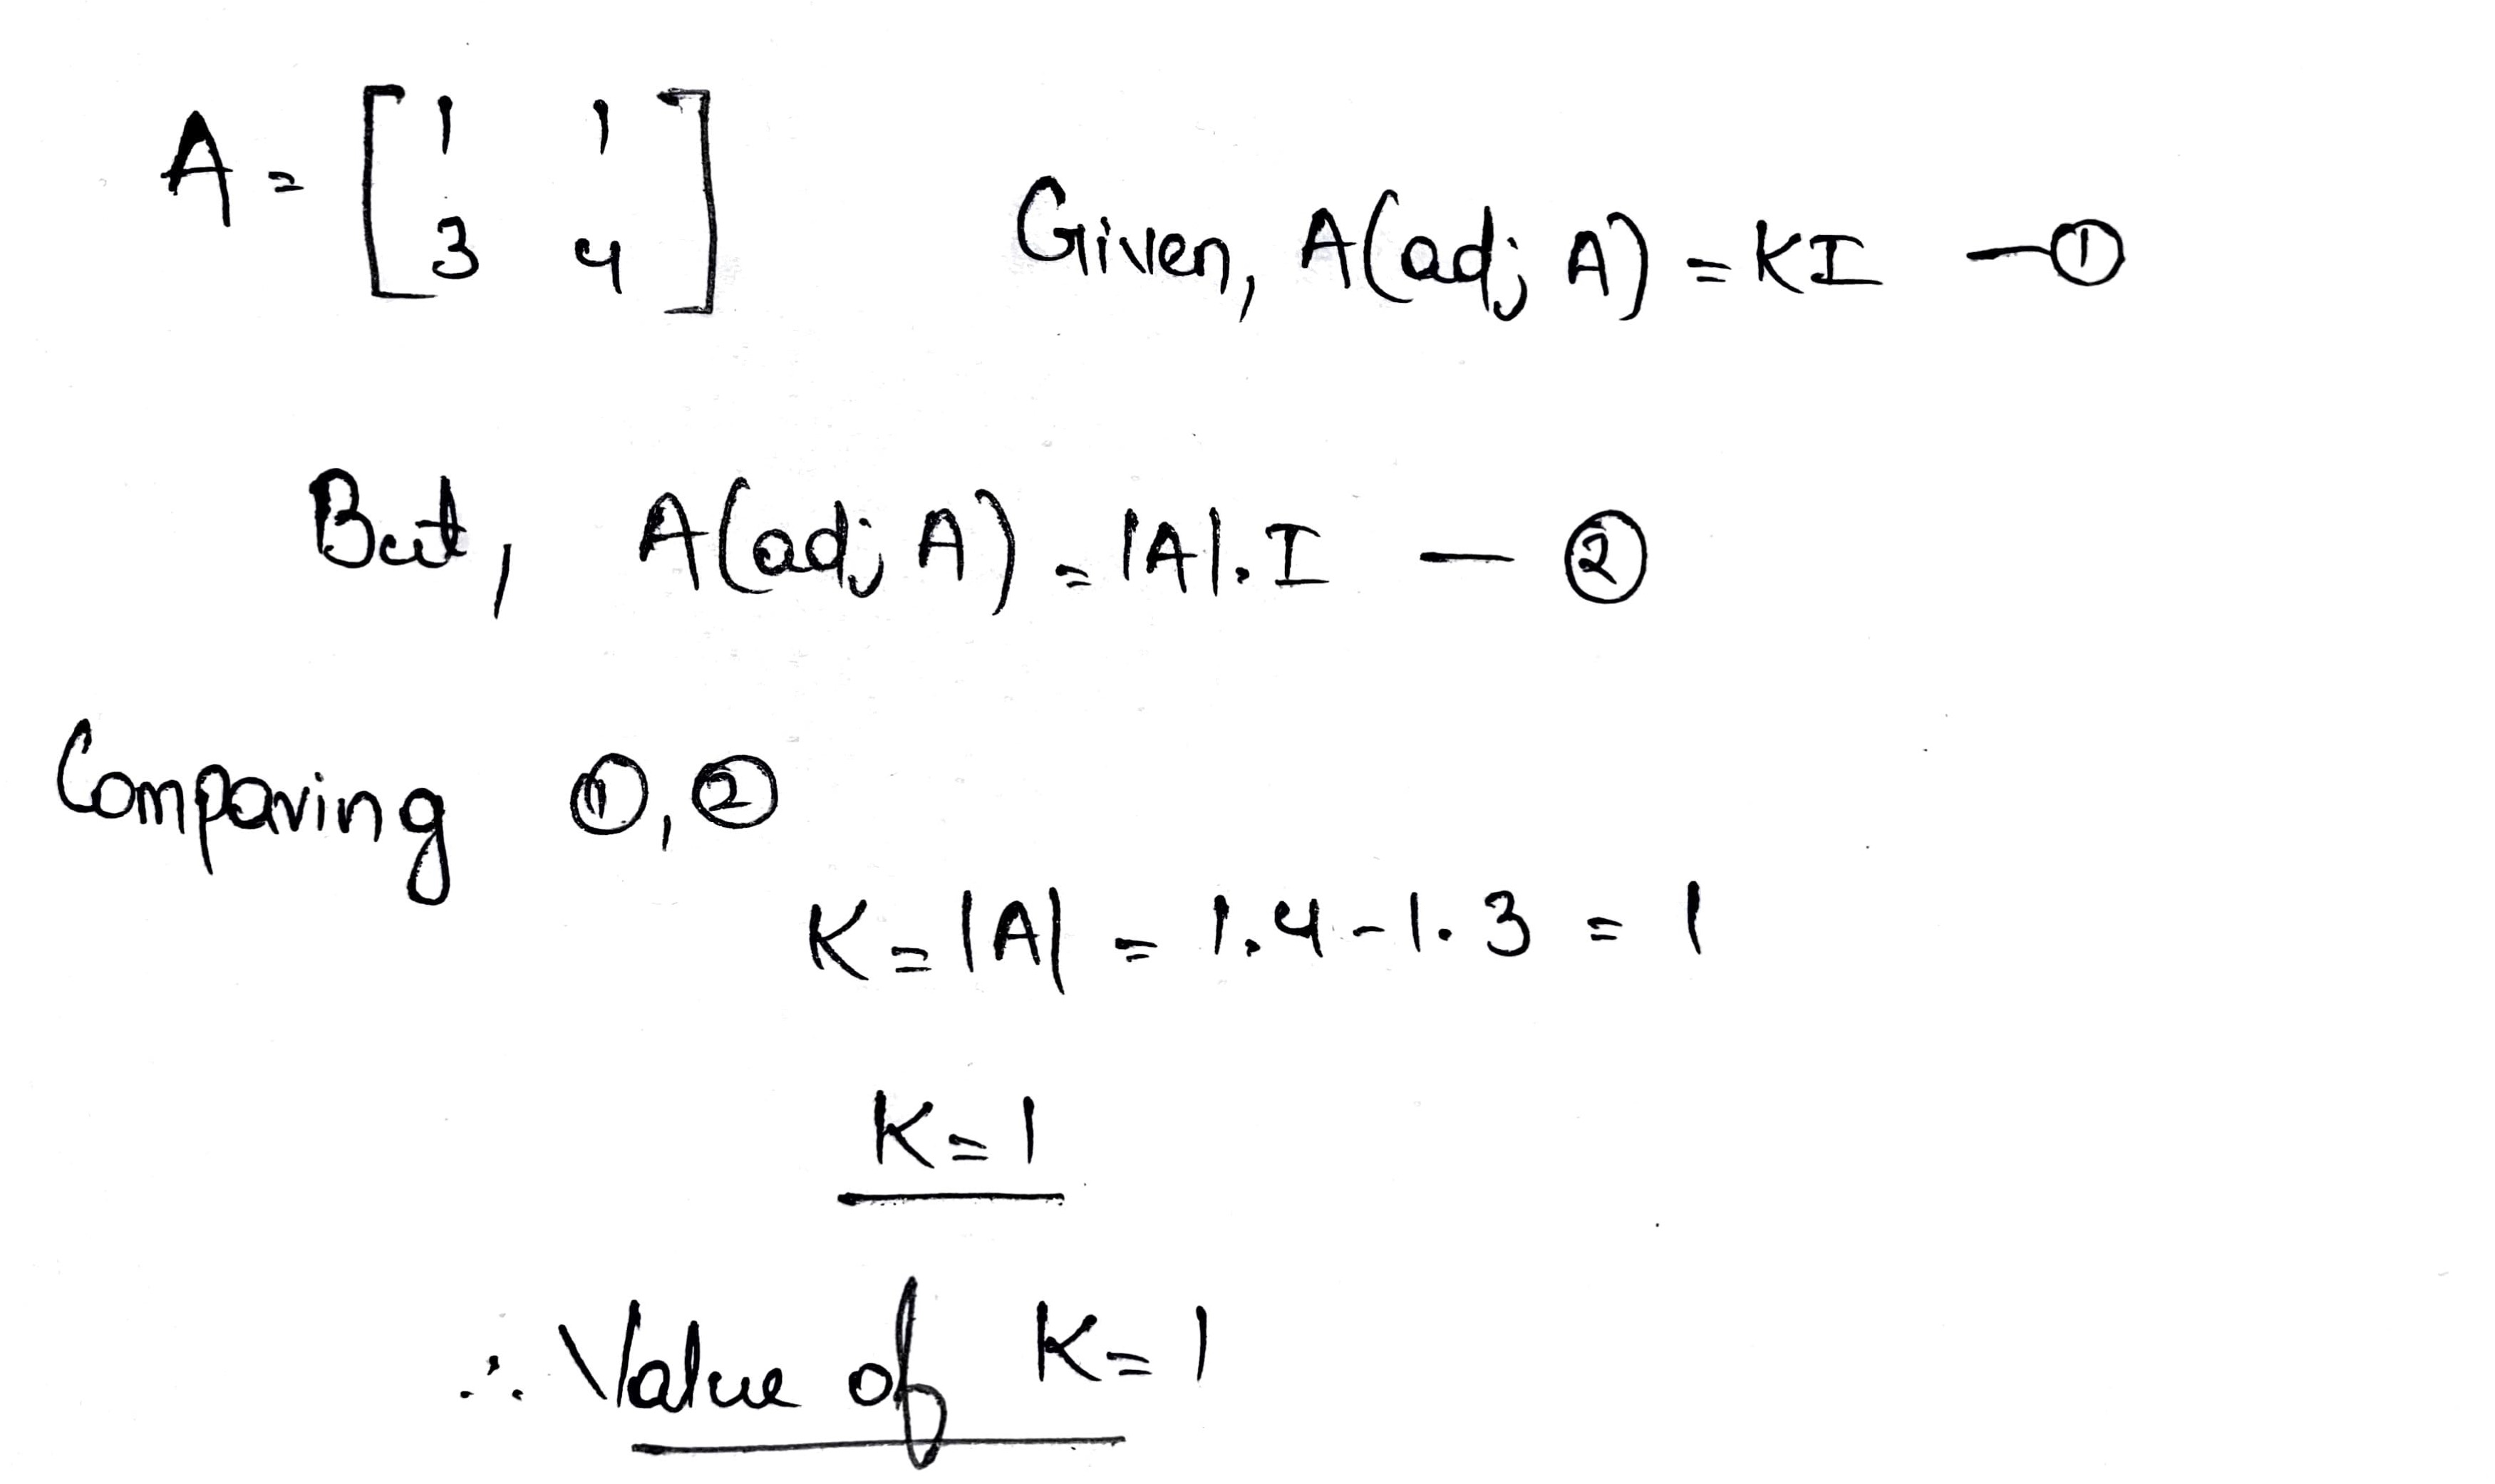 A = [ 1 1
3 4 ] Given, A(adj A) = KI —①
But, A(adj A) = |A|.I — ②
Comparing ①,②
K = |A| = 1.4 - 1.3 = 1
K = 1
∴ Value of K = 1